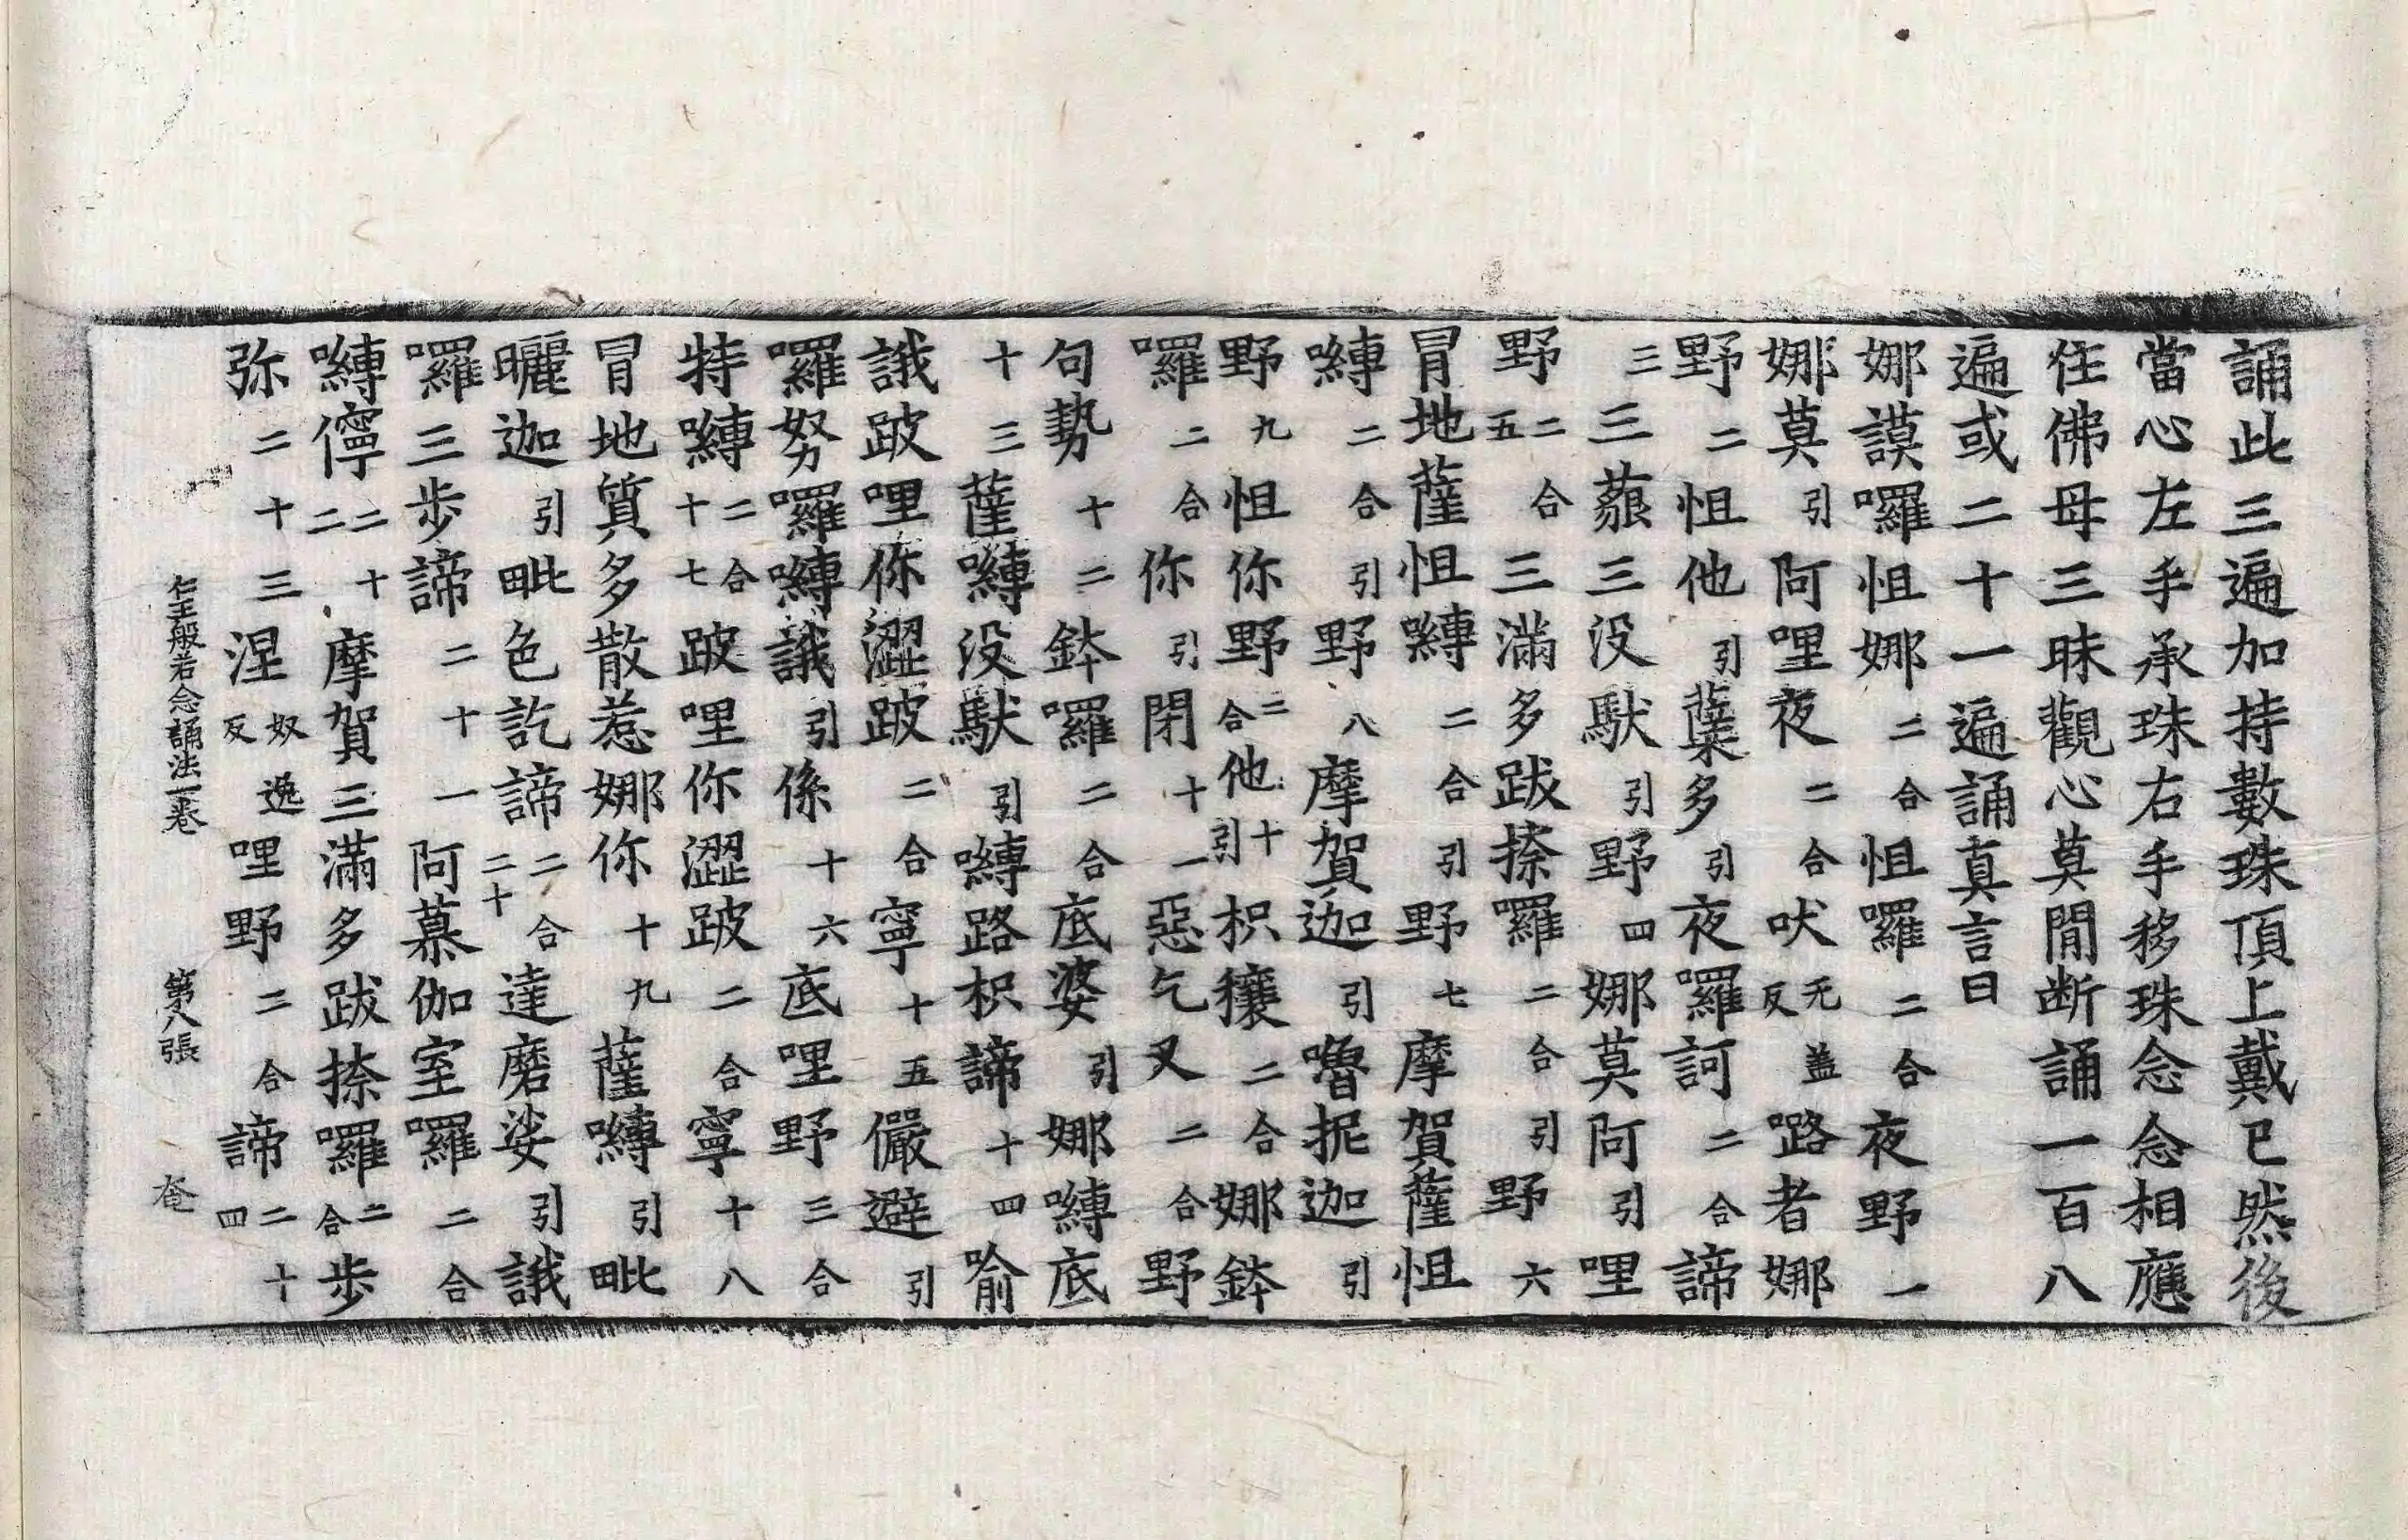 誦此三遍加持數珠頂上戴已然後
當心左手承珠右手移珠念念相應
住佛母三昧觀心莫閒断誦一百八
遍或二十一遍誦真言曰
娜謨囉怛娜二合怛囉二合夜野一
娜莫引阿哩夜二合吠无盖反嚕者娜
野二怛他引蘗多引夜囉訶二合諦
三三藐三没馱引野四娜莫阿引哩
野二合五三滿多跋捺囉二合引野六
冒地薩怛嚩二合引野七摩賀薩怛
嚩二合引野八摩賀迦引嚕抳迦引
野九怛你野二合他引十枳穰二合娜鉢
囉二合你引閉十一惡乞叉二合野
句勢十二鉢囉二合底婆引娜嚩底
十三薩嚩没馱引嚩路枳諦十四喻
誐跛哩你澀跛二合寧十五儼避引
囉努囉嚩誐引係十六底哩野三合
特嚩二合十七跛哩你澀跛二合寧十八
冒地質多散惹娜你十九薩嚩引毗
曬迦引毗色訖諦二合二十達磨娑引誐
囉三步諦二十一阿慕伽室囉二合
嚩儜二十二摩賀三滿多跋捺囉二合步
弥二十三涅奴逸反哩野二合諦二十四
仁王般若念誦法一卷　第八張　奄